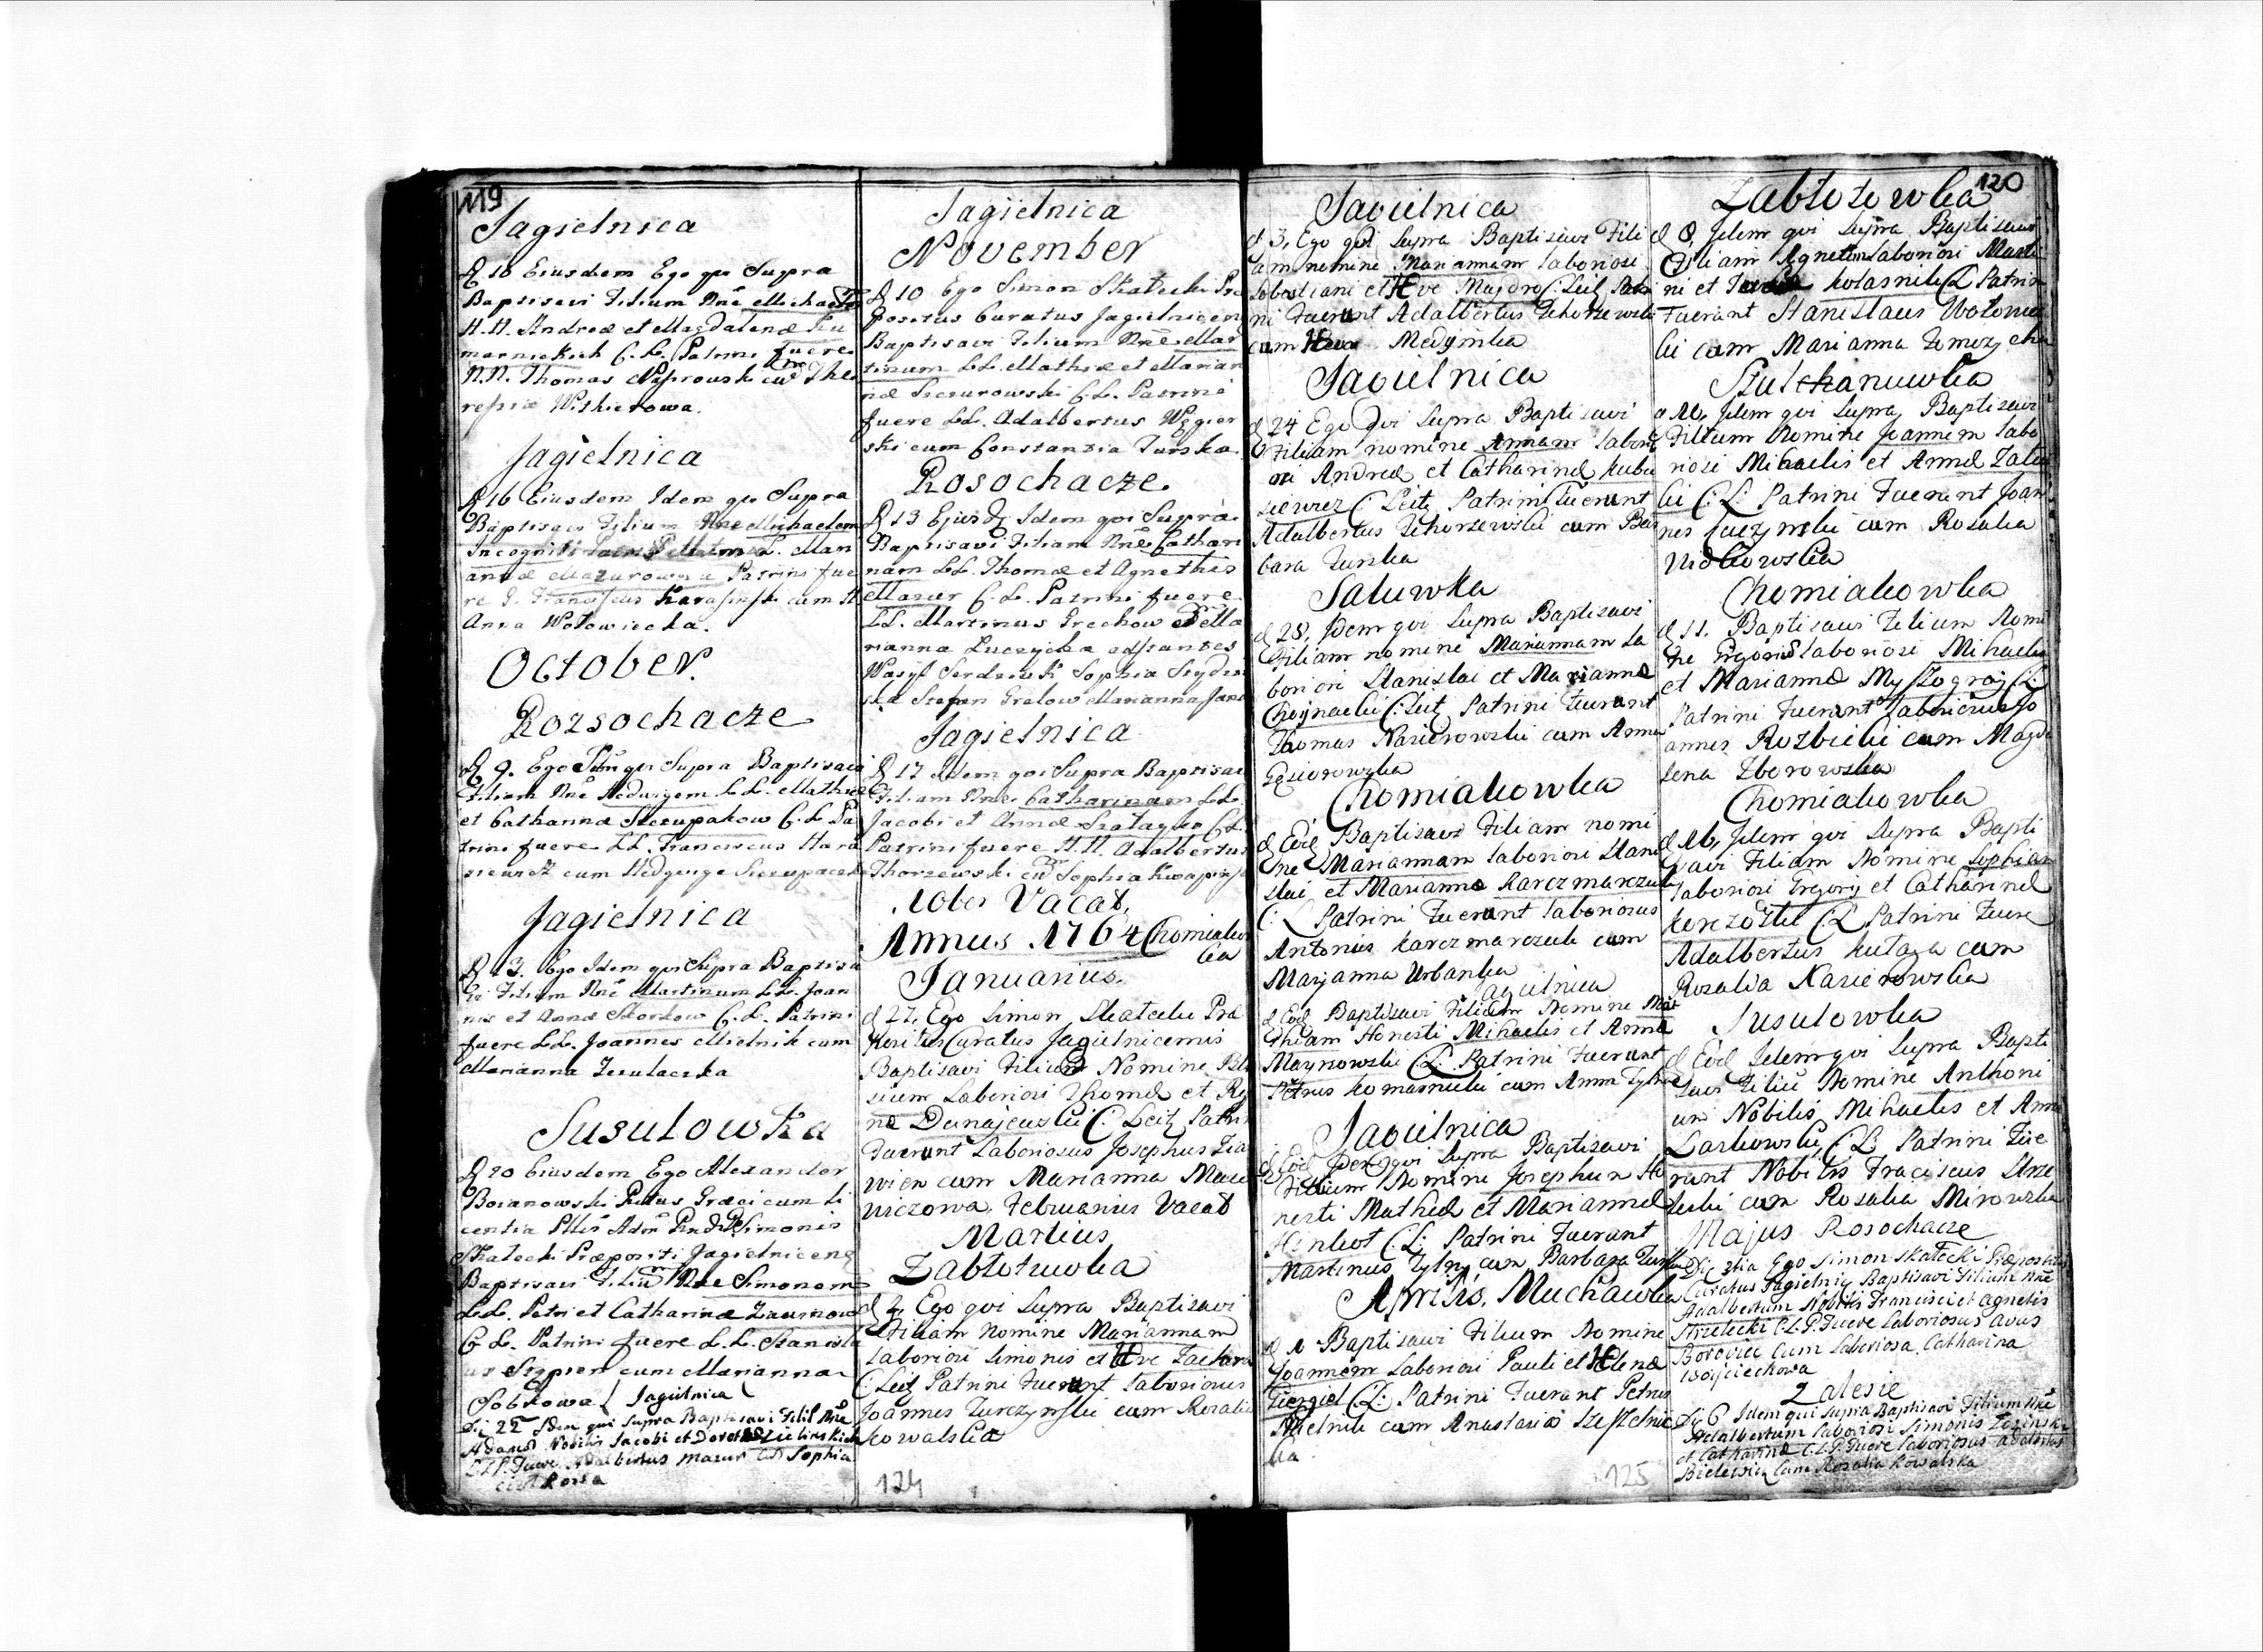 119
Jagielnica
D 10 Eiusdem Ego qui Supra
Baptisavi Filium Nne Michaelem
H.H. Andreæ et Magdalenæ Ku
marnickich C. L. Patrini fuere
N.N. Thomas Naprowski cum The
resiæ Witkierowa.
Jagielnica
D 16 Eiusdem Idem qui Supra
Baptisavi Filium Nne Michaelem
Incogniti Patris et Matris L. Mari
annæ Mazurowna Patrini fue
re G. Franciscus Karasinski cum H
Anna Wołowiecka.
October.
Rozsochacze
D 9. Ego Idem qui Supra Baptisavi
Filiam Nne Hedwigem L.L. Mathiæ
et Catharinæ Szczupakow C. L. Pa
trini fuere L.L. Franciscus Hara
siewicz cum Hedgwige Szczupaczka
Jagielnica
D 13. Ego Idem qui Supra Baptisa
vi Filium Nne Martinum L.L. Joan
nis et Annæ Skorkow C. L. Patrini
fuere L.L. Joannes Mielnik cum
Marianna Szulaczka
Susulowka
D 20 Eiusdem Ego Alexander
Boianowski Ritus Græci cum li
centia Pllis Adm Rndi Simonis
Skałecki Præpositi Jagielnicens
Baptisavi Filium Nne Simonem
L.L. Petri et Catharinæ
C. L. Patrini fuere L.L. Stanisla
us Szypien cum Marianna
Sobkowa Jagielnica
Die 22 Idem qui Supra Baptisavi Filium Nne
Adamum Nobilis Jacobi et Dorotheæ Zielinskich
C.L.P. Fuere Adalbertus Mazur cum Sophia
Jagielnica
November
D 10 Ego Simon Skałecki Præ
positus Curatus Jagielnicen
Baptisavi Filium Nne Mar
tinum L.L. Mathiæ et Marian
næ Szczurowski C. L. Patrini
fuere L.L. Adalbertus Węgier
ski cum Constantia Turska.
Rosochacze.
D 13 Ejusd Idem qui Supra
Baptisavi Filiam Nne Cathari
nam L.L. Thomæ et Agnethis
Mazur C. L. Patrini fuere
L.L. Martinus Grechow et Ma
rianna Luczycka adstantes
Wasyl Serdziuk Sophia
Stefan Grelow Marianna
Jagielnica
D 17 Idem qui Supra Baptisavi
Filiam Nne Catharinam L.L.
Jacobi et Annæ C.L.
Patrini fuere H.H. Adalbertus
Thorzewski cum Sophia
Xober Vacat,
Annus 1764 Chomiakow
ka
Januarius.
d 27, Ego Simon Skałecki Præ
positus Curatus Jagielnicensis
Baptisavi Filium Nomine
Laboriosi Thomæ et Regi
næ Dunajewski C: Leg: Patri
Fuerunt Laboriosus Josephus
cum Marianna
Februarius Vacat
Martius
Zabłotuwka
d 2, Ego qui Supra Baptizavi
Filiam nomine Mariannam
laboriosi Simonis et Hevæ
C: Leg: Patrini Fuerunt laboriosus
Joannes Turczynski cum Rosalia
Kowalska
124
Jagielnica
d 3, Ego qui Supra Baptisavi Fili
am nomine Mariannam laboriosi
Sebastiani et Hevæ Majdro C: Leg: Patri
ni Fuerunt Adalbertus Tchorzewski
cum Heva Medynska
Jagielnica
d 24 Ego Qui Supra Baptisavi
Filiam nomine Annam laborio
si Andreæ et Catharinæ Kubu
siewicz C: Leg: Patrini Fuerunt
Adalbertus Tchorzewski cum Bar
bara Turska
Saluwka
d 28, Idem qui Supra Baptisavi
Filiam nomine Mariannam la
boriosi Stanislai et Mariannæ
Chojnacki C: Leg: Patrini Fuerunt
Thomas Nasierowski cum Anna
Gęsiorowska
Chomiakowka
d Eod Baptisavi Filiam nomi
ne Mariannam laboriosi Stani
slai et Mariannæ Karczmarczuk
C: L: Patrini Fuerunt laboriosus
Antonius Karczmarczuk cum
Marjanna Urbanka
Jagielnica
d Eod Baptisavi Filiam Nomine Mat
Honesti Mihaelis et Annæ
Maynowski C:L: Patrini Fuerunt
Petrus Komarnicki cum Anna
Jagielnica
d Eod Idem qui Supra Baptisavi
Filium Nomine Josephum Ho
nesti Matheæ et Mariannæ
C:L: Patrini Fuerunt
Martinus cum Barbara
Aprilis, Muchawka
d 1 Baptisavi Filium Nomine
Joannem Laboriosi Pauli et Helenæ
Giergiel C:L: Patrini Fuerunt Petrus
Mielnik cum Anastasia
ka
125
120
Zabłotowka
d 8, Idem qui Supra Baptisavi
Filiam Agnetem laboriosi Marti
ni et Kolasnik C:L Patrini
Fuerunt Stanislaus Wołowie
cki cum Marianna
Szulchanuwka
d 10, Idem qui Supra Baptisavi
Filium Nomine Joannem labo
riosi Mihaelis et Annæ
C:L: Patrini Fuerunt Joan
nes cum Rosalia
Chomiakowka
d 11. Baptisavi Filium Nomi
ne laboriosi Mihaelis
et Mariannæ Myszograj C:L:
Patrini Fuerunt laboriosus Jo
annes Rozbicki cum Magda
lena Zborowska
Chomiakowka
d 16, Idem qui Supra Bapti
savi Filiam Nomine Sophiam
laboriosi Gregorij et Catharinæ
C:L Patrini Fuere
Adalbertus cum
Rozalia Nasierowska
Susulowka
d Eod Idem qui Supra Bapti
savi Filiu Nomine Anthoni
um Nobilis Mihaelis et Annæ
C:L: Patrini Fue
runt Nobilis Franciscus Strze
lecki cum Rosalia Mirowska
Majus Rosochacze
Die Ego Simon Skałecki Præpositus
Curatus Jagielnic Baptisavi Filium Nne
Adalbertum Nobilis Francisci et Agnetis
Strzelecki C.L.P. Fuere Laboriosus
Cum Laboriosa Catharina
Wojciechowa
Zalesie
Die 6 Idem qui Supra Baptisavi Filium Nne
Adalbertum laboriosi Simonis
et Catharinæ C.L.P. Fuere Laboriosus Adalbertus
Bielewicz Cum Rosalia Kowalska